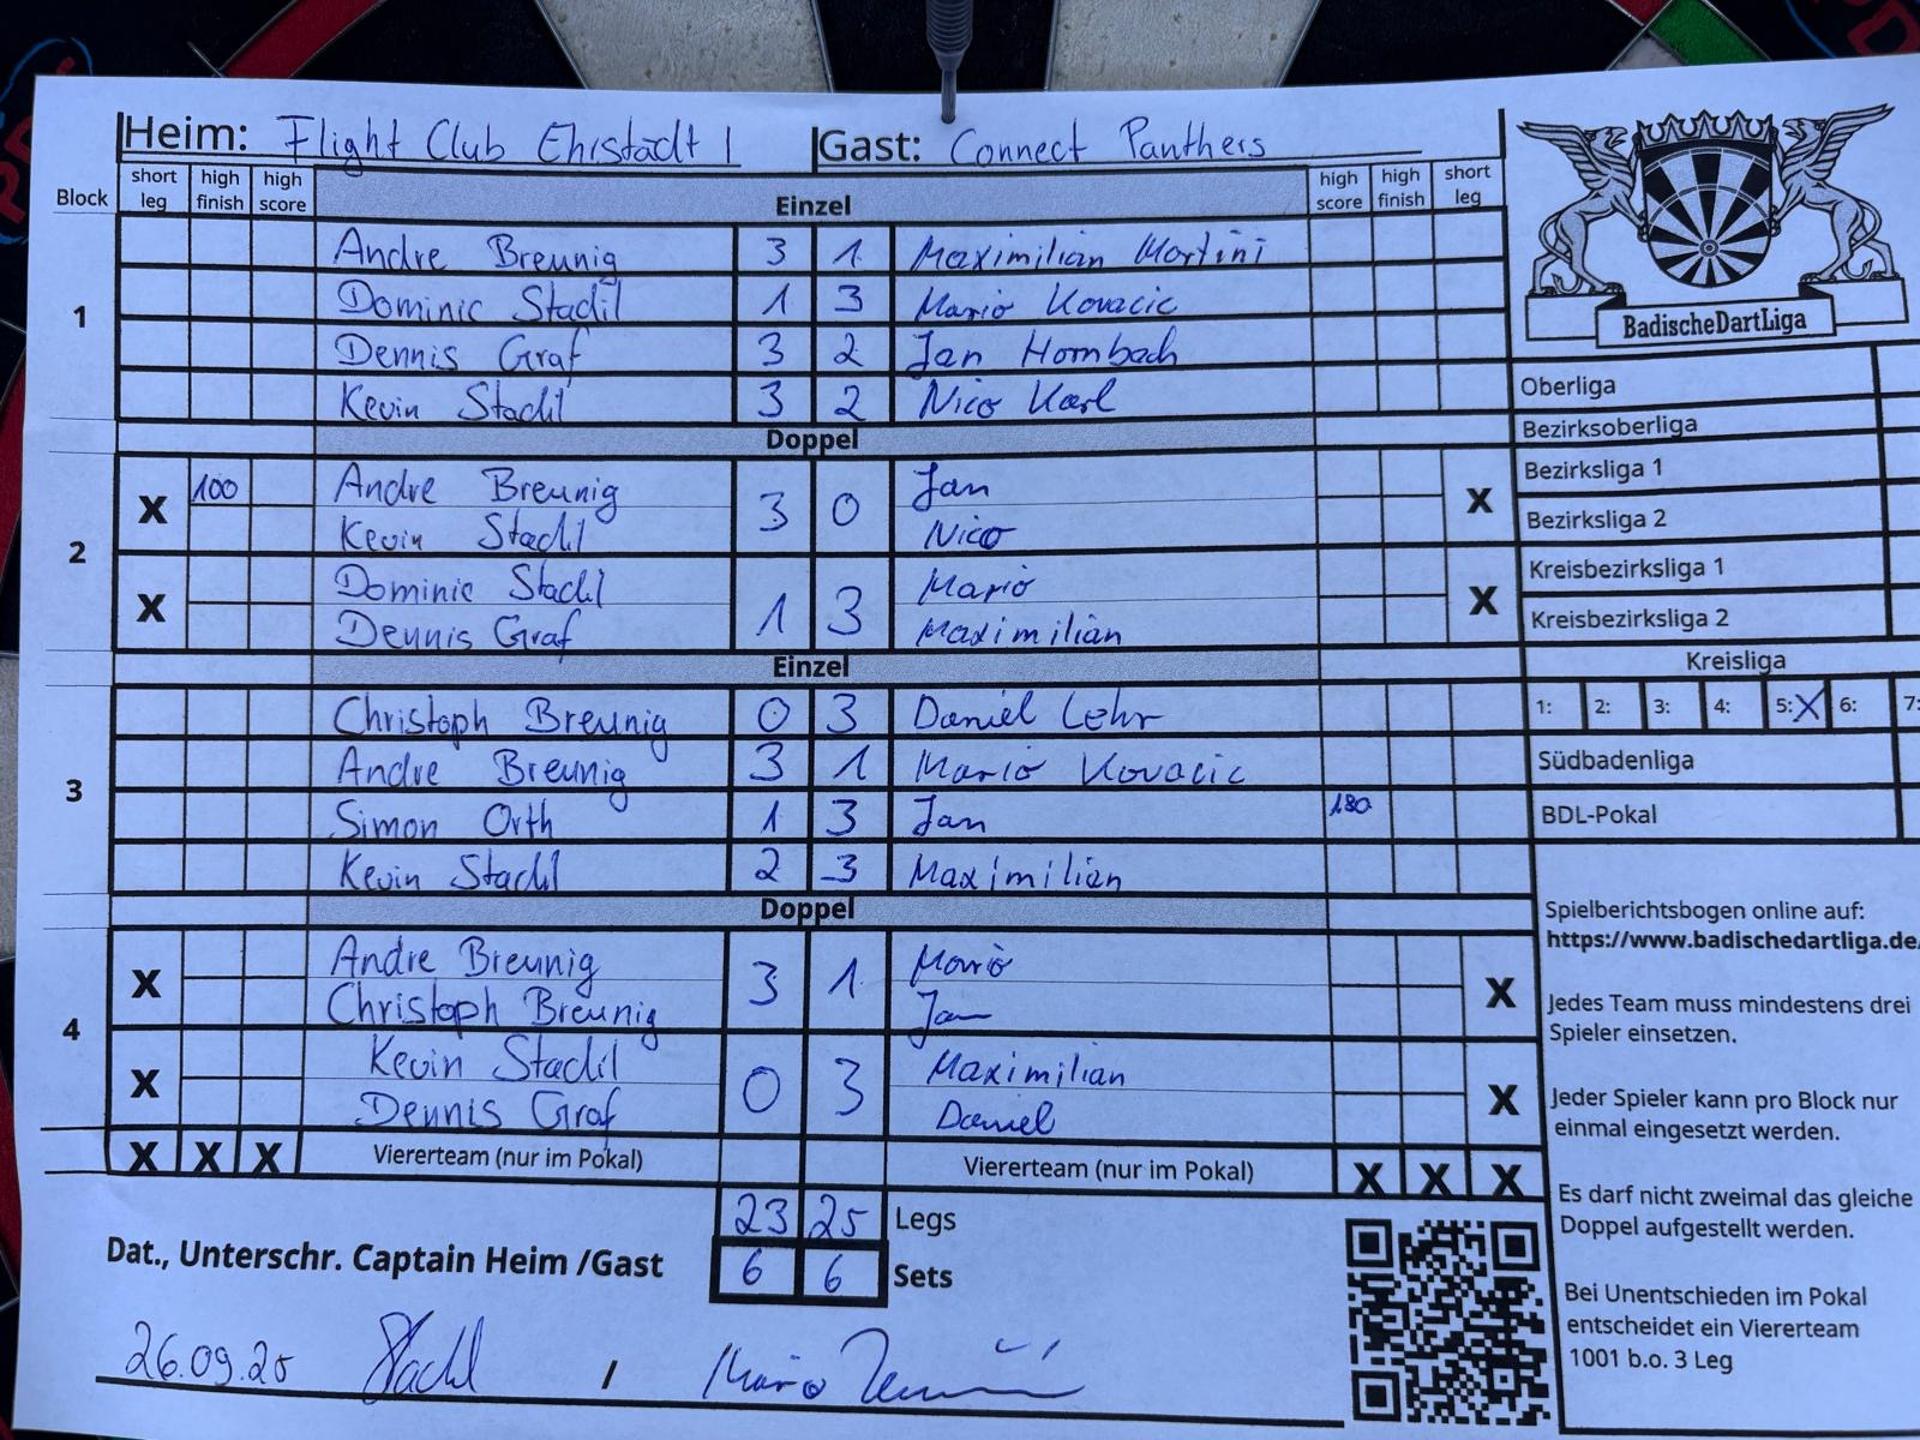 Heim: Flight Club Ehrstädt 1 Gast: Connect Panthers
Block short leg high finish high score Einzel high score high finish short leg
1
Andre Breunig 3 1 Maximilian Martini
Dominic Stadil 1 3 Mario Kovacic
Dennis Graf 3 2 Jan Hombach
Kevin Stadil 3 2 Nico Karl
Doppel
2
X 100 Andre Breunig 3 0 Jan X
Kevin Stadil Nico
X Dominic Stadil 1 3 Mario X
Dennis Graf Maximilian
Einzel
3
Christoph Breunig 0 3 Daniel Lehr
Andre Breunig 3 1 Mario Kovacic
Simon Orth 1 3 Jan 180
Kevin Stadil 2 3 Maximilian
Doppel
4
X Andre Breunig 3 1 Mario X
Christoph Breunig Jan
X Kevin Stadil 0 3 Maximilian X
Dennis Graf Daniel
X X X Viererteam (nur im Pokal) Viererteam (nur im Pokal) X X X
23 25 Legs
6 6 Sets
Dat., Unterschr. Captain Heim /Gast
26.09.25 Stadil / Mario
BadischeDartLiga
Oberliga
Bezirksoberliga
Bezirksliga 1
Bezirksliga 2
Kreisbezirksliga 1
Kreisbezirksliga 2
Kreisliga
1: 2: 3: 4: 5: X 6: 7:
Südbadenliga
BDL-Pokal
Spielberichtsbogen online auf:
https://www.badischedartliga.de/
Jedes Team muss mindestens drei
Spieler einsetzen.
Jeder Spieler kann pro Block nur
einmal eingesetzt werden.
Es darf nicht zweimal das gleiche
Doppel aufgestellt werden.
Bei Unentschieden im Pokal
entscheidet ein Viererteam
1001 b.o. 3 Leg